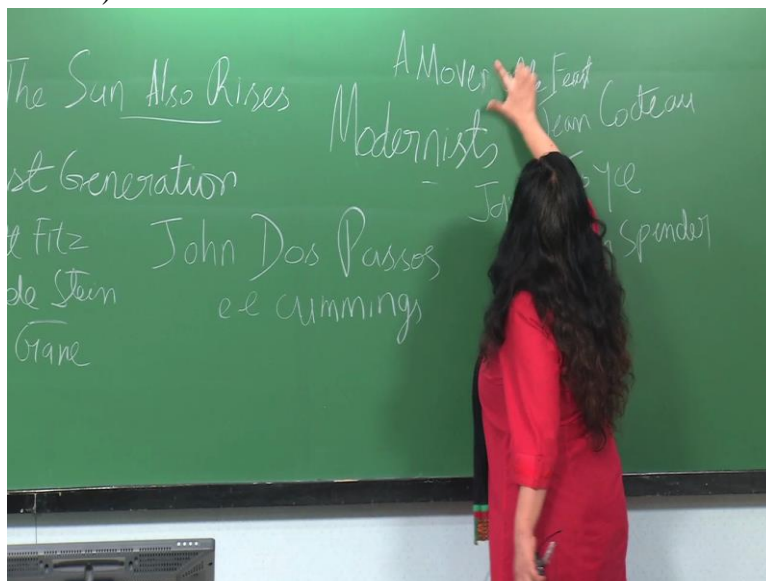 The Sun Also Rises
st Generation
Fitz
de Stein
Crane
John Dos Passos
ee cummings
A Move Feast
Modernists
Jean Cocteau
Jo yce
Spender